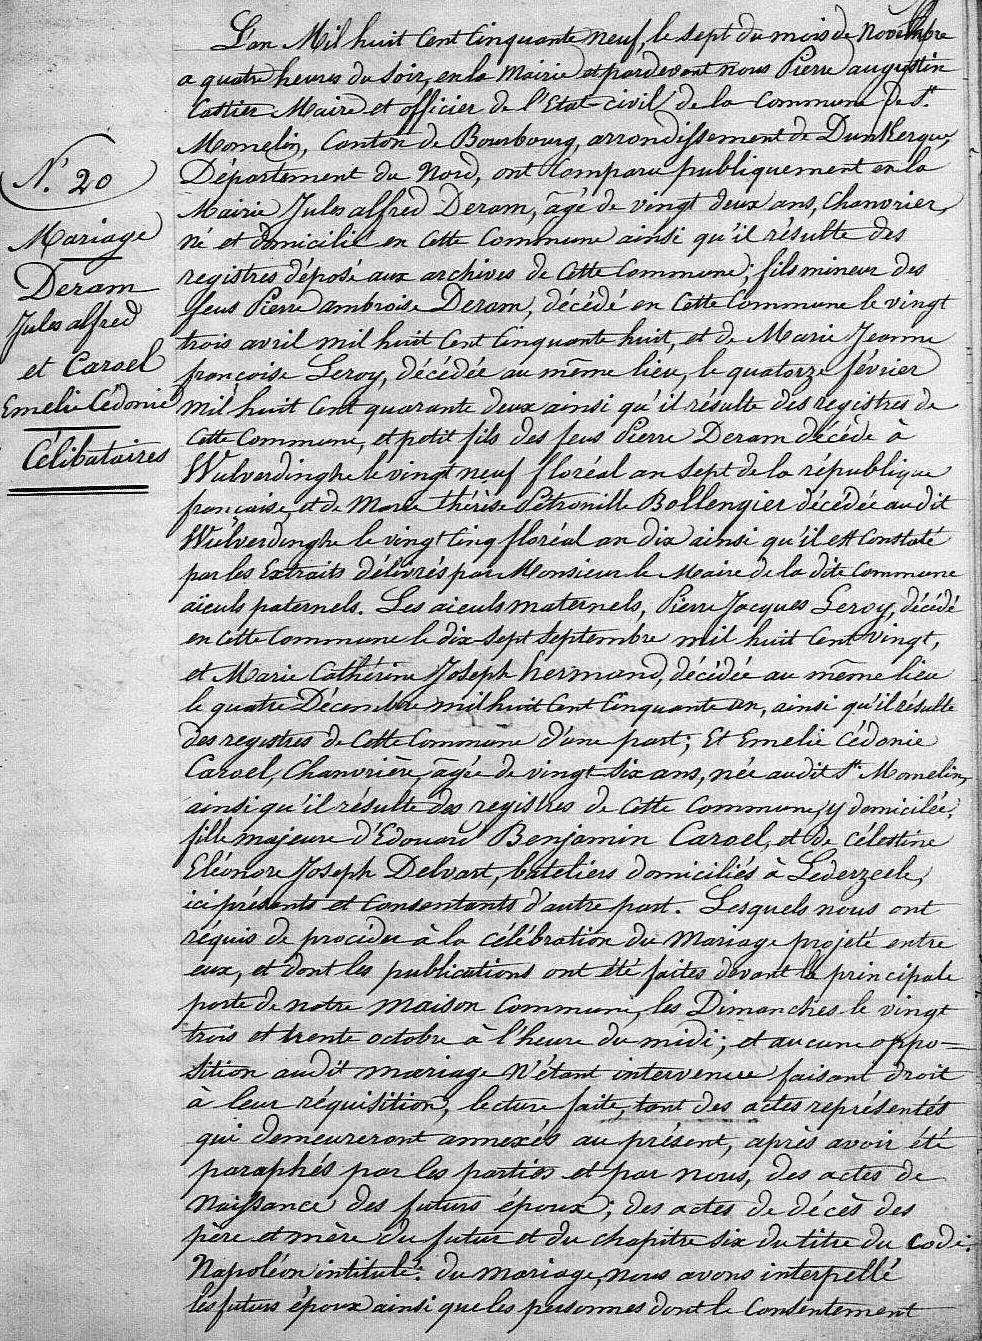 N.° 20
Mariage
Deram
Jules alfred
et Caroel
Emelie Cédonie
Célibataires
L'an Mil huit Cent Cinquante neuf, le sept du mois de Novembre
a quatre heures du Soir, en la Mairie et pardevant nous Pierre augustin
Castier Maire et officier de l'Etat-civil de la Commune de St.
Momelin, Canton de Bourbourg, arrondissement de Dunkerque,
Département du Nord, ont Comparu publiquement en la
Mairie Jules alfred Deram, âgé de vingt deux ans, Chanvrier,
né et domicilié en cette Commune ainsi qu'il résulte des
registres déposé aux archives de cette Commune; fils mineur des
feus Pierre ambroise Deram, décédé en Cette Commune le vingt
trois avril mil huit Cent Cinquante huit, et de Marie Jeanne
françoise Leroy, décédée au même lieu, le quatorze février
mil huit Cent quarante deux ainsi qu'il résulte des registres de
Cette Commune, et petit fils des feus Pierre Deram décédé à
Wulverdinghe le vingt neuf floréal an Sept de la république
française, et de Marie thérèse Pétronille Bollengier décédée audit
Wulverdinghe le vingt Cinq floréal an dix ainsi qu'il est Constaté
par les Extraits délivrés par Monsieur le Maire de la dite Commune
aïeuls paternels. Les aieuls maternels, Pierre Jacques Leroy, décédé
en cette Commune le dix Sept Septembre mil huit Cent vingt,
et Marie Cathérine Joseph hermand, décédée au même lieu
le quatre Décembre mil huit Cent Cinquante un, ainsi qu'il résulte
des registres de Cette Commune d'une part; Et Emelie Cédonie
Caroel, Chanvrière, âgée de vingt Six ans, née audit St. Momelin,
ainsi qu'il résulte des registres de Cette Commune, y domicilée,
fille majeure d'Edouard Benjamin Caroel, et de Célestine
Eléonore Joseph Delvart, bateliers domiciliés à Léderzeele,
ici présents et Consentants d'autre part. Lesquels nous ont
réquis de procéder à la célébration du Mariage projeté entre
eux, et dont les publications ont été faites devant la principale
porte de notre Maison Commune, les Dimanches le vingt
trois et trente octobre à l'heure du midi; et aucune oppo-
sition audit mariage N'étant intervenue faisant droit
à leur réquisition, lecture faite, tant des actes représentés
qui demeureront annexés au présent, après avoir été
paraphés par les parties et par nous, des actes de
Naissance des futurs époux; des actes de décès des
père et mère du futur et du chapitre Six du titre du Code
Napoléon intitulé: du Mariage, nous avons interpellé
les futurs époux ainsi que les personnes dont le Consentement